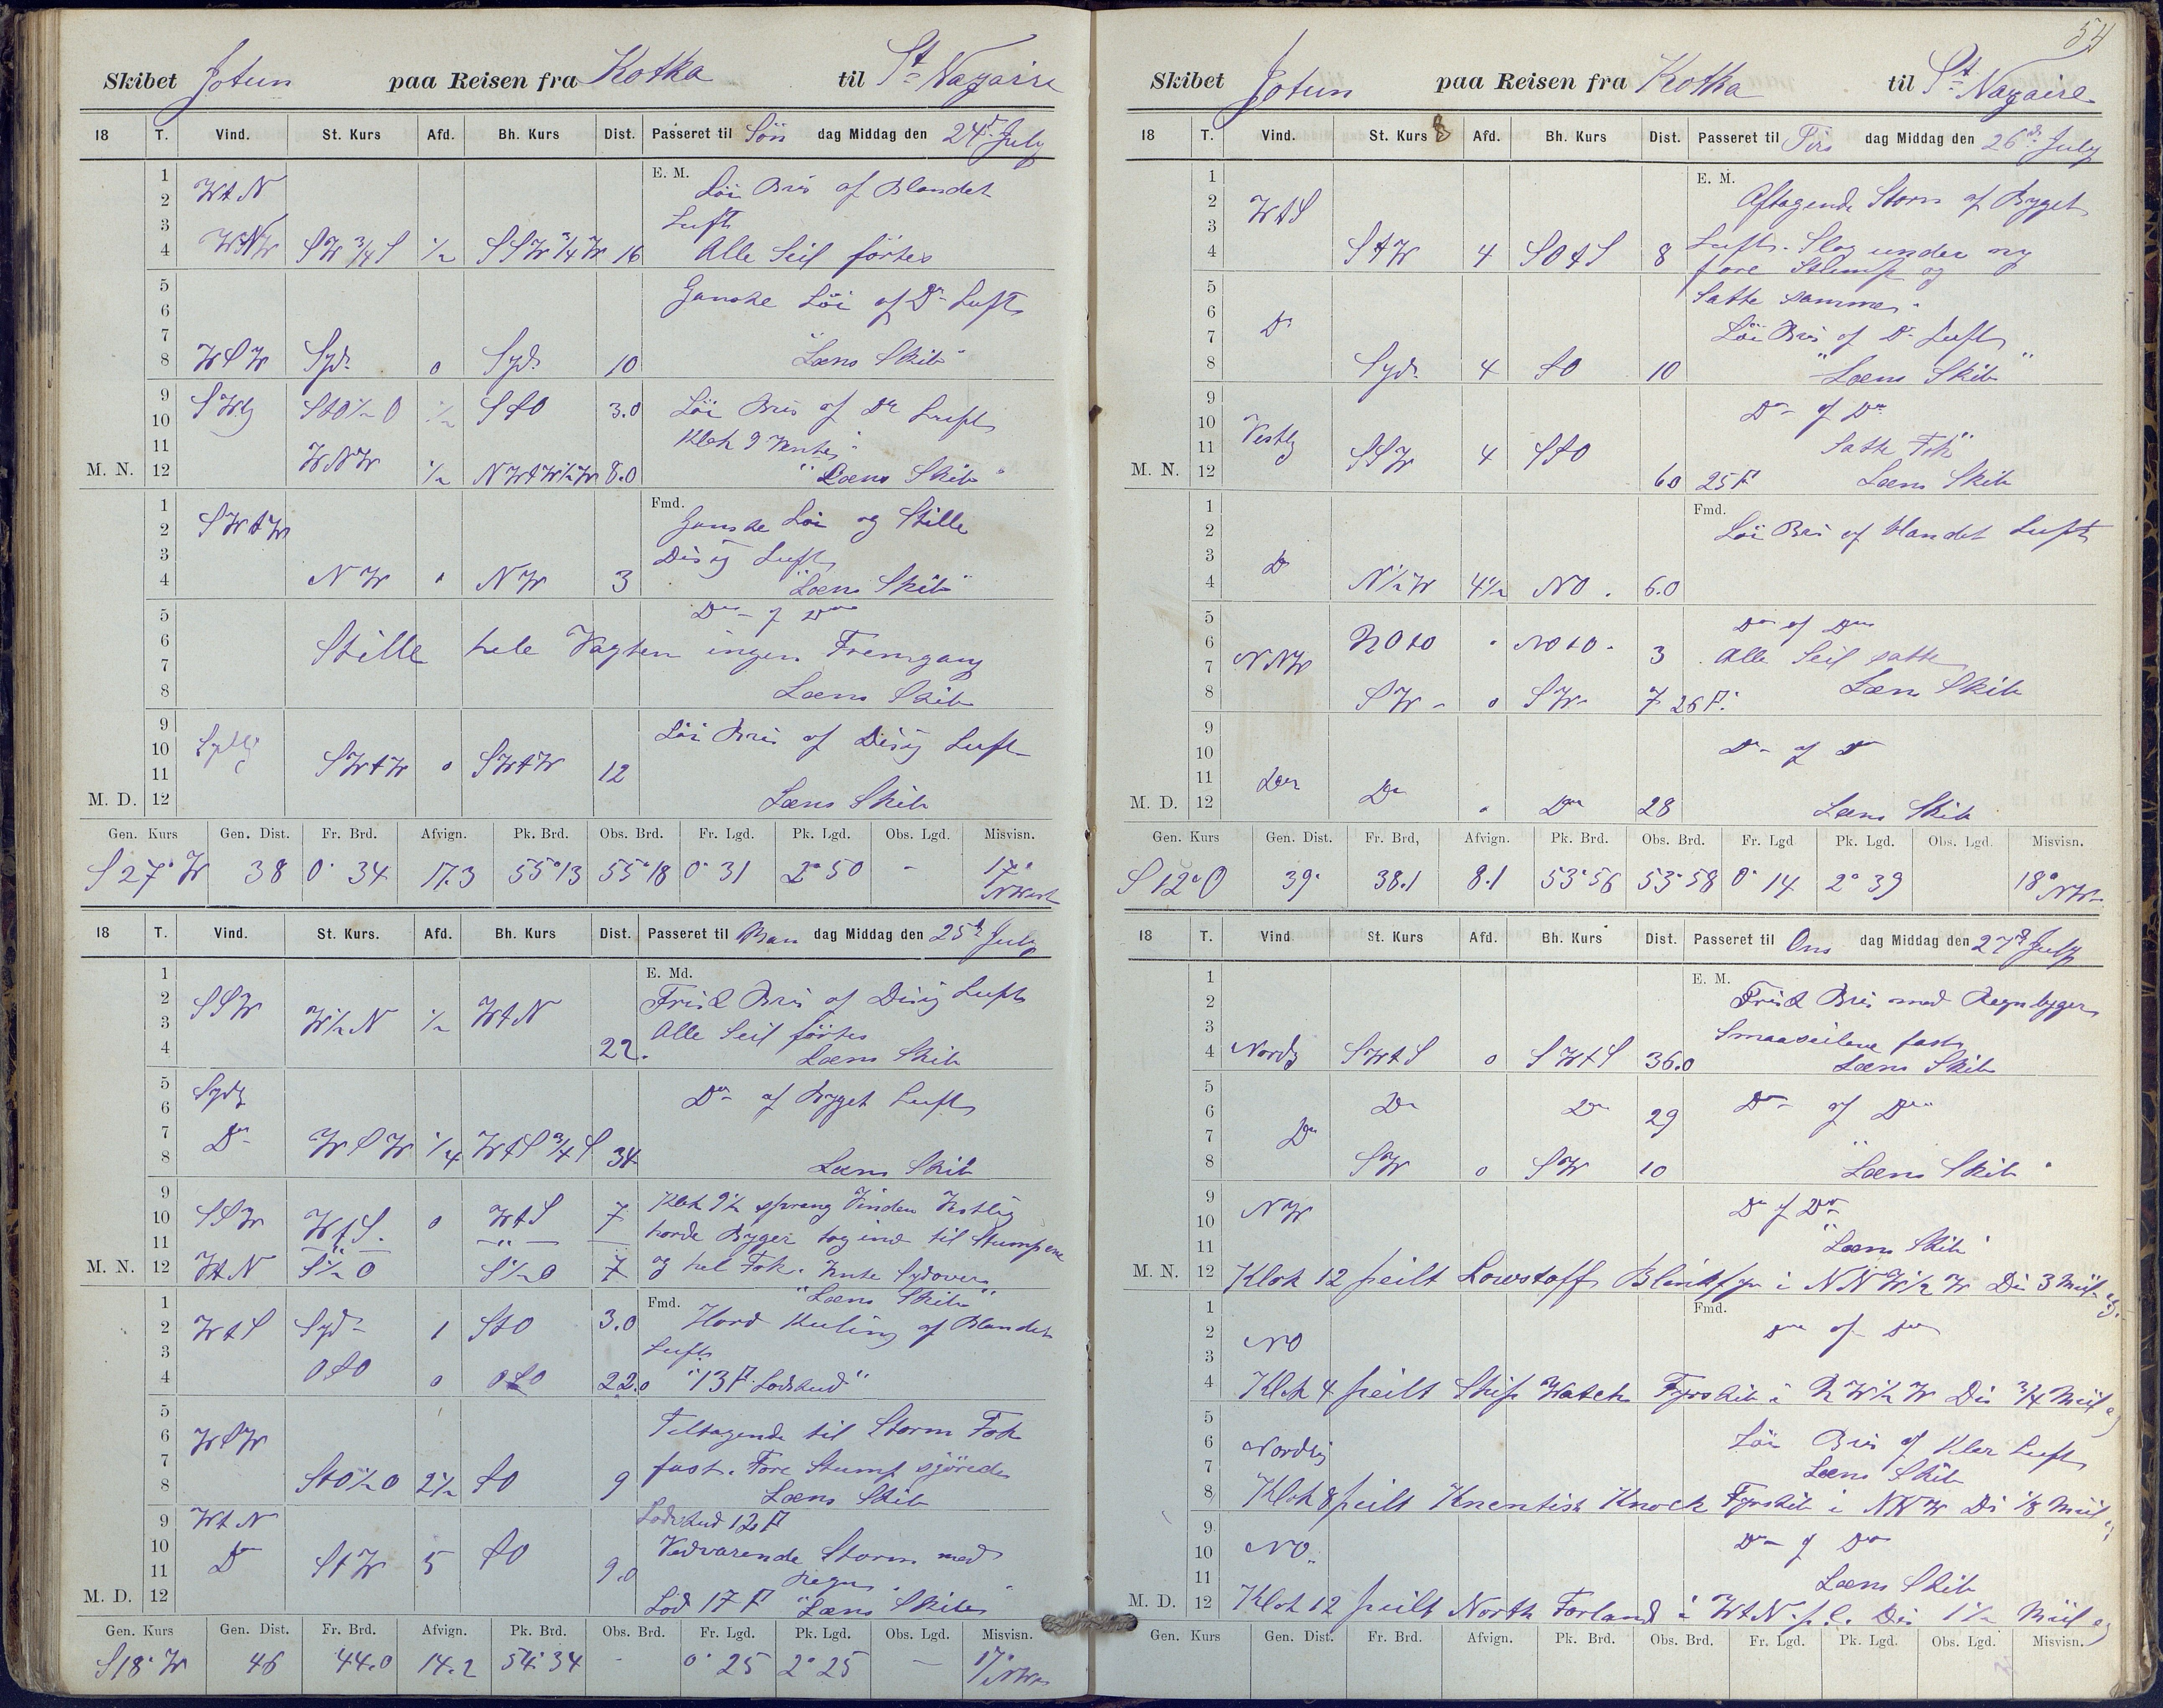 Skibet Jotun paa Reisen fra Kotka til St Nazaire
18 T. Vind. St. Kurs Afd. Bh. Kurs Dist. Passeret til Søn dag Middag den 24d July
E. M.
1
2 WtN Löi Bris af Blandet
3 Luft
4 WNW SW 3/4 S 1/2 SSW 3/4 W 16 Alle Seil förtes
5 Ganske Löi af Do Luft
6
7
8 WSW Syd. 0 Syd. 10 "Læns Skib"
9 SWlg StO 1/2 O 1/2 StO 3.0 Löi Bris af Do Luft
10 Klok 9 Vendte
11
M. N. 12 WNW 1/2 NWtW1/2W 8.0 "Læns Skib"
Fmd.
1 Ganske Löi og Stille
2 SWtW
3 Disig Luft
4 NW NW 3 "Læns Skib"
5 Do af Do
6 Stille hele Vagten ingen Fremgang
7
8 Læns Skib
9 Löi Bris af Disig Luft
10 Sydlig
11 SWtW 0 SWtW 12
M. D. 12 Læns Skib
Gen. Kurs Gen. Dist. Fr. Brd. Afvign. Pk. Brd. Obs. Brd. Fr. Lgd. Pk. Lgd. Obs. Lgd. Misvisn.
S 27° W 38 0° 34 17.3 55° 13 55° 18 0° 31 2° 50 - 17° NWest
18 T. Vind. St. Kurs. Afd. Bh. Kurs Dist. Passeret til Man dag Middag den 25d July
E. Md.
1
2 SSW WtN Frisk Bris af Disig Luft
3 W1/2N 1/2 Alle Seil förtes
4 22. Læns Skib
5 Sydlg
6 Do af Bygget Luft
7 Do
8 WSW 1/4 WtS 3/4 S 34 Læns Skib
9 Klok 9 1/2 sprang Vinden Vestlig
10 SSW WtS. 0 WtS 7
11 haarde Byger tog ind til Stumpene
M. N. 12 WtN S1/2O S1/2O 7 og hel Fok. Sydover
"Læns Skib"
Fmd.
1
2 WtS Syd 1 StO 3.0 Hard Kuling af Blandet
3 Luft
4 OtO 0 OtO 22.0 "13 F Lodskud"
5 Tiltagende til Storm Fok
6 WSW
7 fast. Fore Stump gjöredes
8 StO1/2O 2 1/2 SO 9 Læns Skib
9 WtN Lodskud 12 F
10 Do Vedvarende Storm med
11 StW 5 SO 9.0 Regn
M. D. 12 Lod 17 F "Læns Skib"
Gen. Kurs Gen. Dist. Fr. Brd. Afvign. Pk. Brd. Obs. Brd. Fr. Lgd. Pk. Lgd. Obs. Lgd. Misvisn.
S 18° W 46 44.0 14.2 54° 34 - 0° 25 2° 25 — 17° NWest
54
Skibet Jotun paa Reisen fra Kotka til St Nazaire
18 T. Vind. St. Kurs Afd. Bh. Kurs Dist. Passeret til Tirs dag Middag den 26de July
E. M.
1
2 WtS Aftagende Storm af Bygget
3
4 StW 4 SOtS 8 Luft. Slog under ny
fore Stump og
5 Satte samme.
6
7 Do Löi Bris af Do Luft
8 Syd. 4 SO 10 "Læns Skib"
9 Do af Do
10 Vestlg
11 SSW 4 StO Satte Fok
M. N. 12 60 25 F Læns Skib
Fmd.
1
2 Löi Bris af blandet Luft
3 Do
4 N1/2W 4 1/2 NO. 6.0
5 Do af Do
6 NOtO NOtO. 3 Alle Seil satte
7 NNW
8 SW 0 SW 7 26 F. Læns Skib
9
10 Do af Do
11 Do
M. D. 12 Do Do 28 Læns Skib
Gen. Kurs Gen. Dist. Fr. Brd, Afvign. Pk. Brd. Obs. Brd. Fr. Lgd Pk. Lgd. Obs. Lgd. Misvisn.
S 12° O 39. 38.1 8.1 53° 56 53° 58 0° 14 2° 39 18° NW
18 T. Vind St. Kurs Afd. Bh. Kurs Dist. Passeret til Ons dag Middag den 27d July
E. M.
1
2 Frisk Bris med Regnbyger
3 Smaaseilene fast
4 Nordlg SWtS 0 SWtS 36.0 Læns Skib
5
6 Do Do 29 Do af Do
7 Do
8 SW 0 SW 10 "Læns Skib"
9 NW Do af Do
10
11 "Læns Skib"
M. N. 12 Klok 12 peilt Lowstoff Blinkfyr i NNW1/2W Dis 3 Miil
Fmd.
1
2 NO Do af Do
3
4 Klok 4 peilt Ship Watch Fyrskib i NW1/2W Dis 3/4 Miil
5
6 Nordlig Löi Bris af Klar Luft
7 Læns Skib
8 Klok 8 peilt Knentish Knock Fyrskib i NNW Di 1/8 Miil
9
10 NO.. Do af Do
11 Læns Skib
M. D. 12 Klok 12 peilt North Forland i WtN p.C. Dis 1 1/2 Miil
Gen. Kurs Gen. Dist. Fr. Brd. Afvign. Pk. Brd. Obs. Brd. Fr. Lgd. Pk. Lgd. Obs. Lgd. Misvisn.